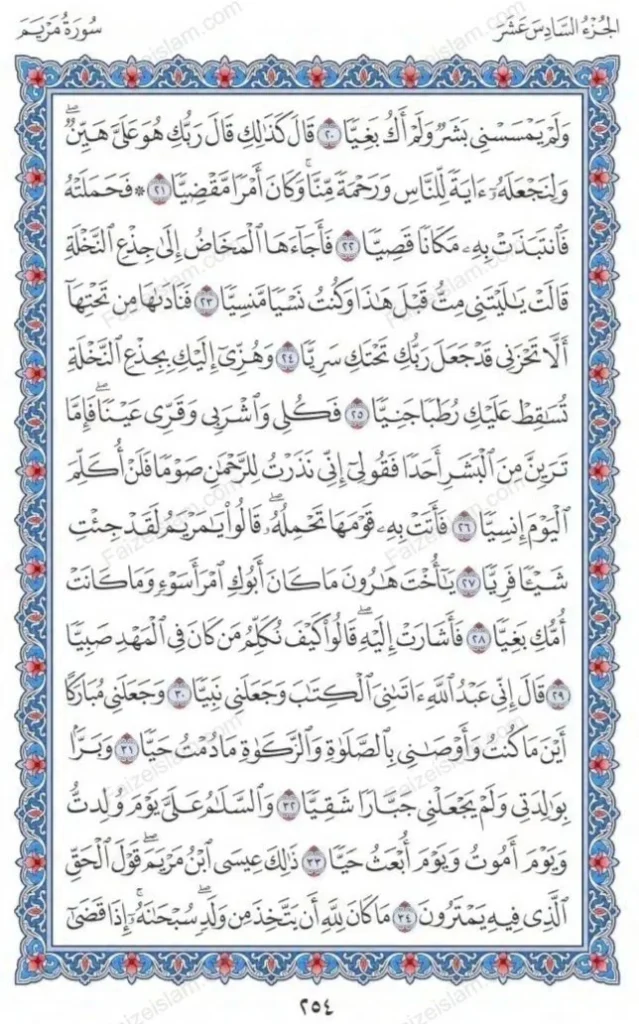 الجُزْءُ السَّادِسَ عَشَرَ سُورَةُ مَرْيَمَ
وَلَمْ يَمْسَسْنِي بَشَرٌ وَلَمْ أَكُ بَغِيًّا ٢٠ قَالَ كَذَٰلِكِ قَالَ رَبُّكِ هُوَ عَلَىَّ هَيِّنٌ ۖ
وَلِنَجْعَلَهُۥٓ ءَايَةً لِّلنَّاسِ وَرَحْمَةً مِّنَّا ۚ وَكَانَ أَمْرًا مَّقْضِيًّا ٢١ * فَحَمَلَتْهُ
فَٱنتَبَذَتْ بِهِۦ مَكَانًا قَصِيًّا ٢٢ فَأَجَآءَهَا ٱلْمَخَاضُ إِلَىٰ جِذْعِ ٱلنَّخْلَةِ
قَالَتْ يَٰلَيْتَنِي مِتُّ قَبْلَ هَٰذَا وَكُنتُ نَسْيًا مَّنسِيًّا ٢٣ فَنَادَىٰهَا مِن تَحْتِهَآ
أَلَّا تَحْزَنِي قَدْ جَعَلَ رَبُّكِ تَحْتَكِ سَرِيًّا ٢٤ وَهُزِّىٓ إِلَيْكِ بِجِذْعِ ٱلنَّخْلَةِ
تُسَٰقِطْ عَلَيْكِ رُطَبًا جَنِيًّا ٢٥ فَكُلِي وَٱشْرَبِي وَقَرِّي عَيْنًا ۖ فَإِمَّا
تَرَيِنَّ مِنَ ٱلْبَشَرِ أَحَدًا فَقُولِيٓ إِنِّي نَذَرْتُ لِلرَّحْمَٰنِ صَوْمًا فَلَنْ أُكَلِّمَ
ٱلْيَوْمَ إِنسِيًّا ٢٦ فَأَتَتْ بِهِۦ قَوْمَهَا تَحْمِلُهُۥ ۖ قَالُوا۟ يَٰمَرْيَمُ لَقَدْ جِئْتِ
شَيْـًٔا فَرِيًّا ٢٧ يَٰٓأُخْتَ هَٰرُونَ مَا كَانَ أَبُوكِ ٱمْرَأَ سَوْءٍ وَمَا كَانَتْ
أُمُّكِ بَغِيًّا ٢٨ فَأَشَارَتْ إِلَيْهِ ۖ قَالُوا۟ كَيْفَ نُكَلِّمُ مَن كَانَ فِي ٱلْمَهْدِ صَبِيًّا
٢٩ قَالَ إِنِّي عَبْدُ ٱللَّهِ ءَاتَىٰنِيَ ٱلْكِتَٰبَ وَجَعَلَنِي نَبِيًّا ٣٠ وَجَعَلَنِي مُبَارَكًا
أَيْنَ مَا كُنتُ وَأَوْصَٰنِي بِٱلصَّلَوٰةِ وَٱلزَّكَوٰةِ مَا دُمْتُ حَيًّا ٣١ وَبَرًّۢا
بِوَٰلِدَتِي وَلَمْ يَجْعَلْنِي جَبَّارًا شَقِيًّا ٣٢ وَٱلسَّلَٰمُ عَلَىَّ يَوْمَ وُلِدتُّ
وَيَوْمَ أَمُوتُ وَيَوْمَ أُبْعَثُ حَيًّا ٣٣ ذَٰلِكَ عِيسَى ٱبْنُ مَرْيَمَ ۖ قَوْلَ ٱلْحَقِّ
ٱلَّذِي فِيهِ يَمْتَرُونَ ٣٤ مَا كَانَ لِلَّهِ أَن يَتَّخِذَ مِن وَلَدٍ ۖ سُبْحَٰنَهُۥٓ ۚ إِذَا قَضَىٰٓ
٢٥٤
Faizeislam.com